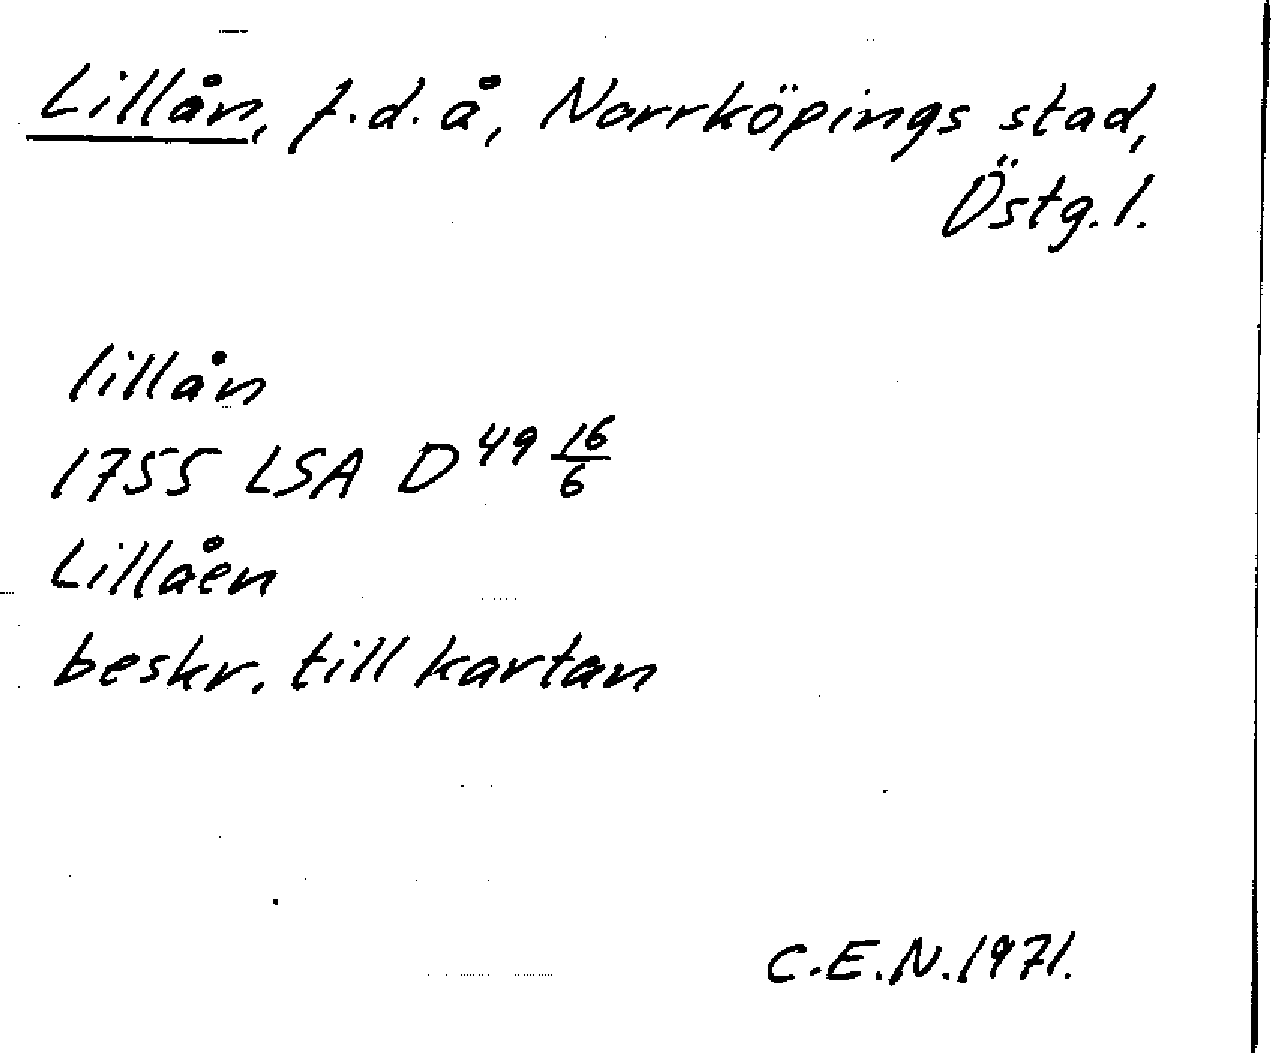 Lillån, f.d. å, Norrköpings stad,
Östg. l.
lillån
1755 LSA D 49 16/6
Lillåen
beskr. till kartan
C.E.N. 1971.